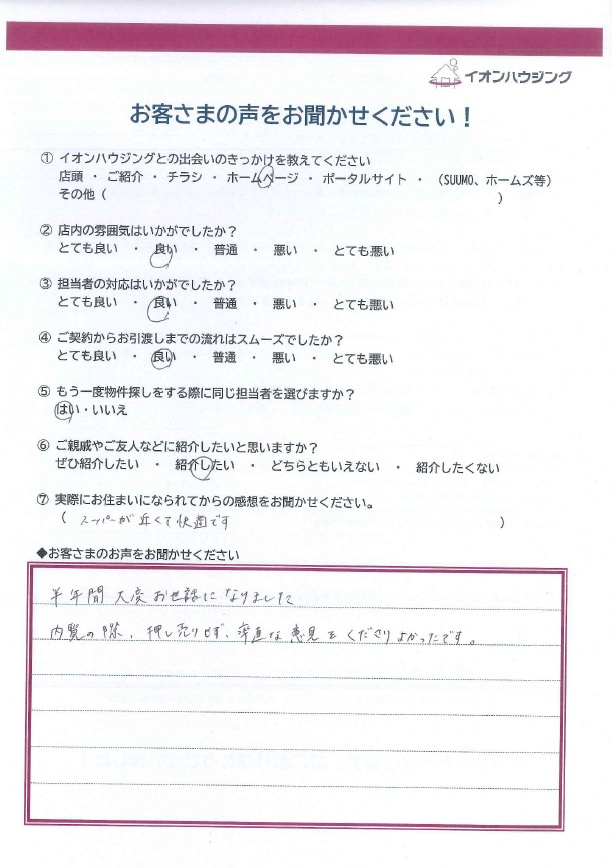 イオンハウジング
お客さまの声をお聞かせください！
① イオンハウジングとの出会いのきっかけを教えてください
店頭 ・ ご紹介 ・ チラシ ・ ホームページ ・ ポータルサイト ・ （SUUMO、ホームズ等）
その他（ ）
② 店内の雰囲気はいかがでしたか？
とても良い ・ 良い ・ 普通 ・ 悪い ・ とても悪い
③ 担当者の対応はいかがでしたか？
とても良い ・ 良い ・ 普通 ・ 悪い ・ とても悪い
④ ご契約からお引渡しまでの流れはスムーズでしたか？
とても良い ・ 良い ・ 普通 ・ 悪い ・ とても悪い
⑤ もう一度物件探しをする際に同じ担当者を選びますか？
はい・いいえ
⑥ ご親戚やご友人などに紹介したいと思いますか？
ぜひ紹介したい ・ 紹介したい ・ どちらともいえない ・ 紹介したくない
⑦ 実際にお住まいになられてからの感想をお聞かせください。
（ スーパーが近くて快適です ）
◆お客さまのお声をお聞かせください
半年間大変お世話になりました
内覧の際、押し売りせず、率直な意見をくださりよかったです。